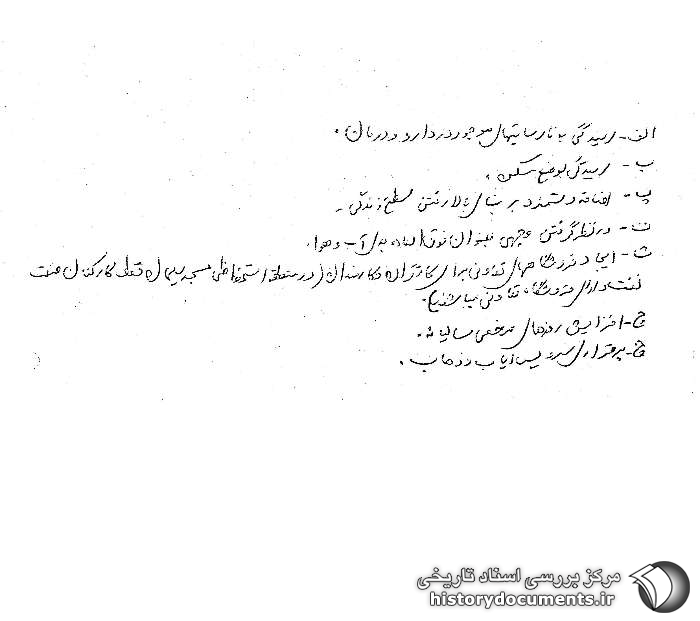 الف- رسیدگی به نارسایتهای موجود در دارو و درمان.
ب- رسیدگی بوضع مسکن.
پ- اضافه دستمزد بر مبنای بالا رفتن سطح زندگی.
ت- در نظر گرفتن وجهی بعنوان فوق العاده بدی آب و هوا.
ث- ایجاد فروشگاههای تعاونی برای کارگران و کارمندان (در منطقه استحفاظی مسجدسلیمان فقط کارکنان صنعت
نفت دارای فروشگاه تعاونی میباشند).
ج- افزایش روزهای مرخصی سالیانه.
چ- برقراری سرویس ایاب و ذهاب.
مرکز بررسی اسناد تاریخی
historydocuments.ir